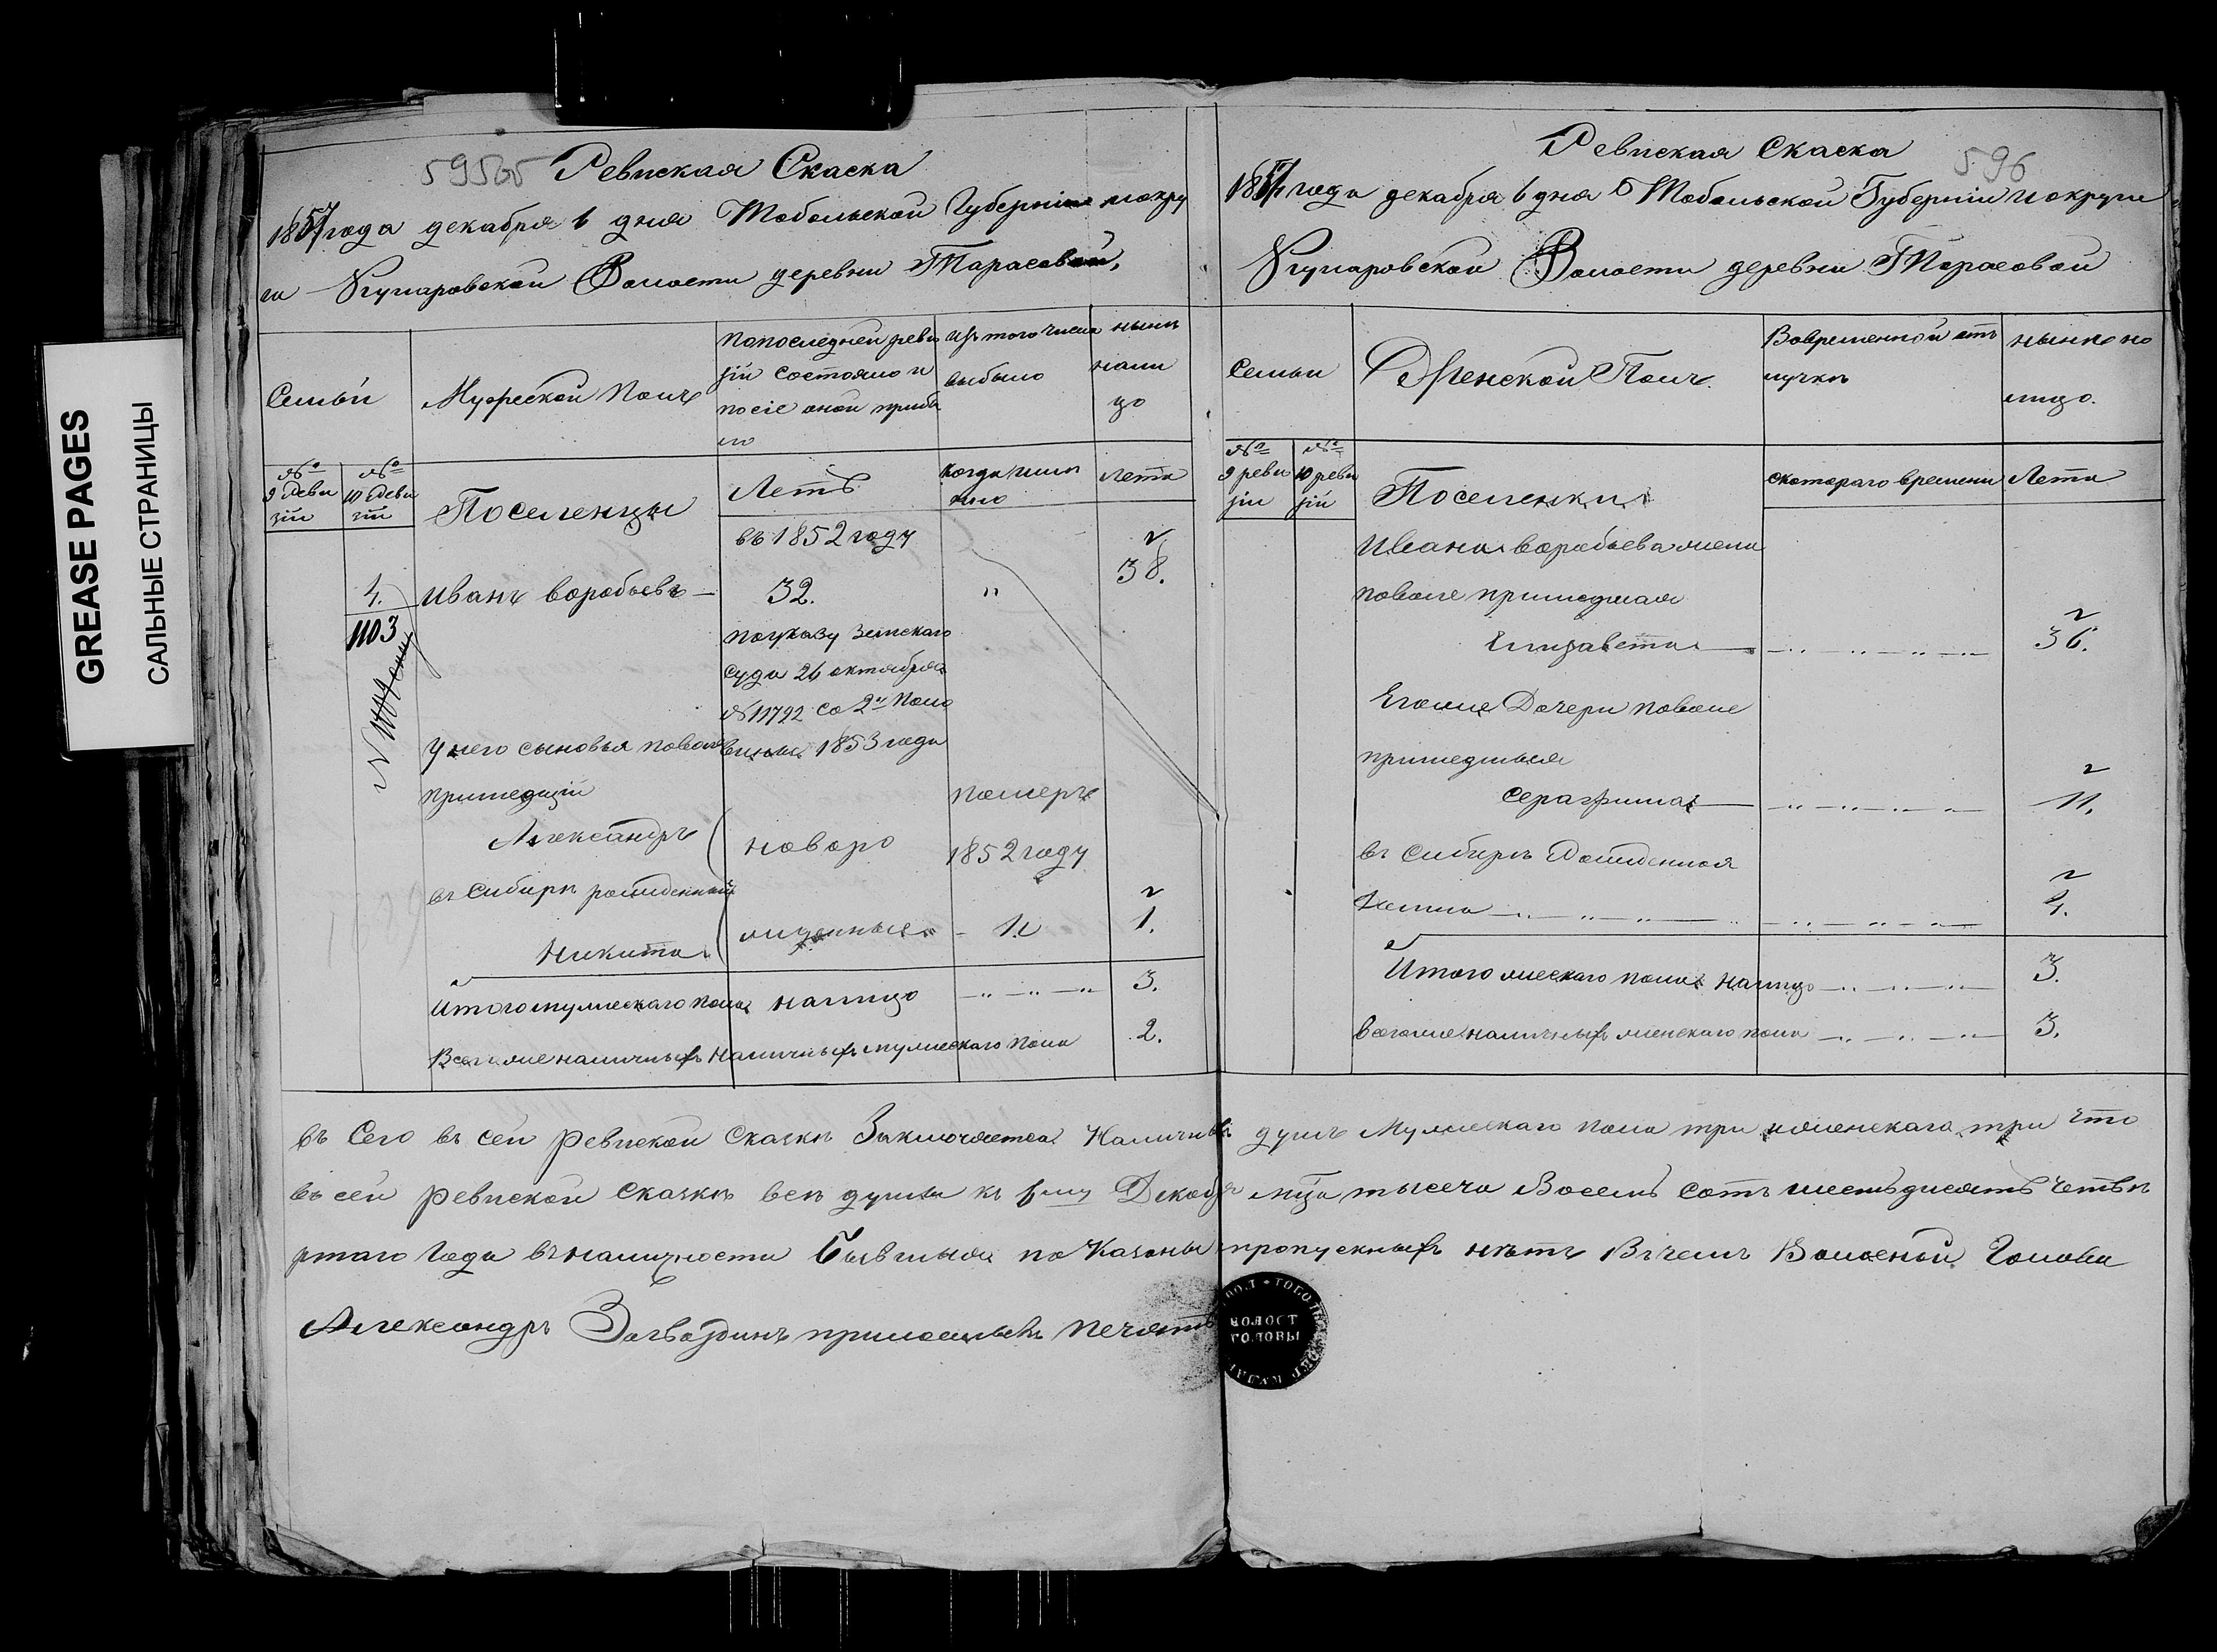 GREASE PAGES
САЛЬНЫЕ СТРАНИЦЫ
Ревиская Скаска
года декабря 6 дня Тобольской Губерніи иокру
ги Кугаровской Волости деревни Тарасовой.
Семьи
Мужеской Полъ
Попоследней реви
зіи состояло и
после оной прибы
ло
Изъ того числа
выбыло
нынѣ
нали
цо
№
9 Реви
зіи
№
10 Реви
зіи
Поселенцы
Летъ
когда имен
но
Лета
въ 1852 году
4.
1103
Иванъ Воробьевъ
32.
"
38.
поуказу Земскаго
суда 26 октября
№ 11792 со 2й поло
вины 1853 года
у него сыновья поволе
пришедшій
Александръ
новоро
померъ
1852 году
въ Сибири рожденный
Никита
жденные
1.
Итого мужескаго пола налицо
3.
Всего же наличныхъ наличныхъ мужескаго пола
2.
Ревиская Скаска
596
года декабря 6 дня Тобольской Губерніи иокруги
Кугаровской Волости деревни Тарасовой
Семьи
Женской Полъ
Вовременной отъ
лучкѣ
нынѣ на
лицо.
№
9 реви
зіи
№
10 реви
зіи
Поселенки
скотораго времени
Лета
Ивана Воробьева жена
поволе пришедшая
Елизавета
36.
Егоже Дочери поволе
пришедшыя
Серафима
11.
въ Сибирѣ Рожденная
4.
Итого женскаго пола налицо
3.
Всегоже наличныхъ женскаго пола
3.
въ Сего въ сей Ревиской Скаскѣ Заключяетса Наличныхъ душъ Мужескаго пола три иженскаго три Что
въ сей Ревиской Скаскѣ всѣ душы къ 6му Декабря мца тысеча Восемь сотъ шестьдисятъ четвѣ
ртаго Года въ наличности пропускныхъ нѣтъ Въчемъ Волосной Голова
Александръ печять
ВОЛОСТ
ГОЛОВЫ